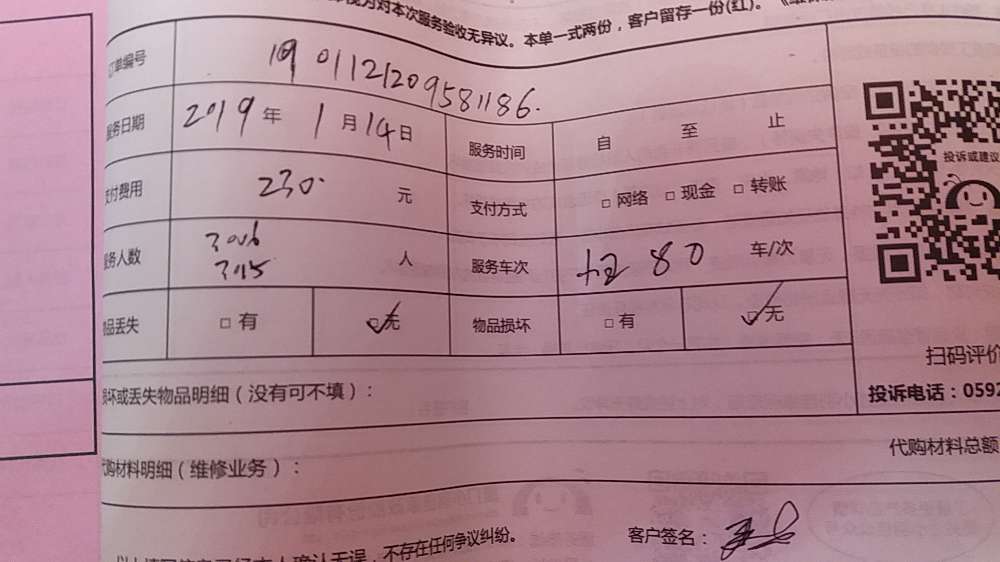 对本次服务验收无异议。本单一式两份，客户留存一份(红)。
订单编号 01121209581186.
服务日期 2019年 1月14日 服务时间 自 至 止
支付费用 230. 元 支付方式 □网络 □现金 □转账
服务人数 3016 3115 人 服务车次 80 车/次
物品丢失 □有 ☑无 物品损坏 □有 ☑无
损坏或丢失物品明细（没有可不填）：
代购材料明细（维修业务）：
代购材料总额
投诉或建议
扫码评价
投诉电话：0592
确认无误，不存在任何争议纠纷。
客户签名：